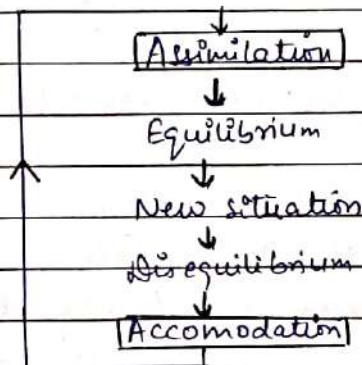 Assimilation
Equilibrium
New situation
Disequilibrium
Accomodation